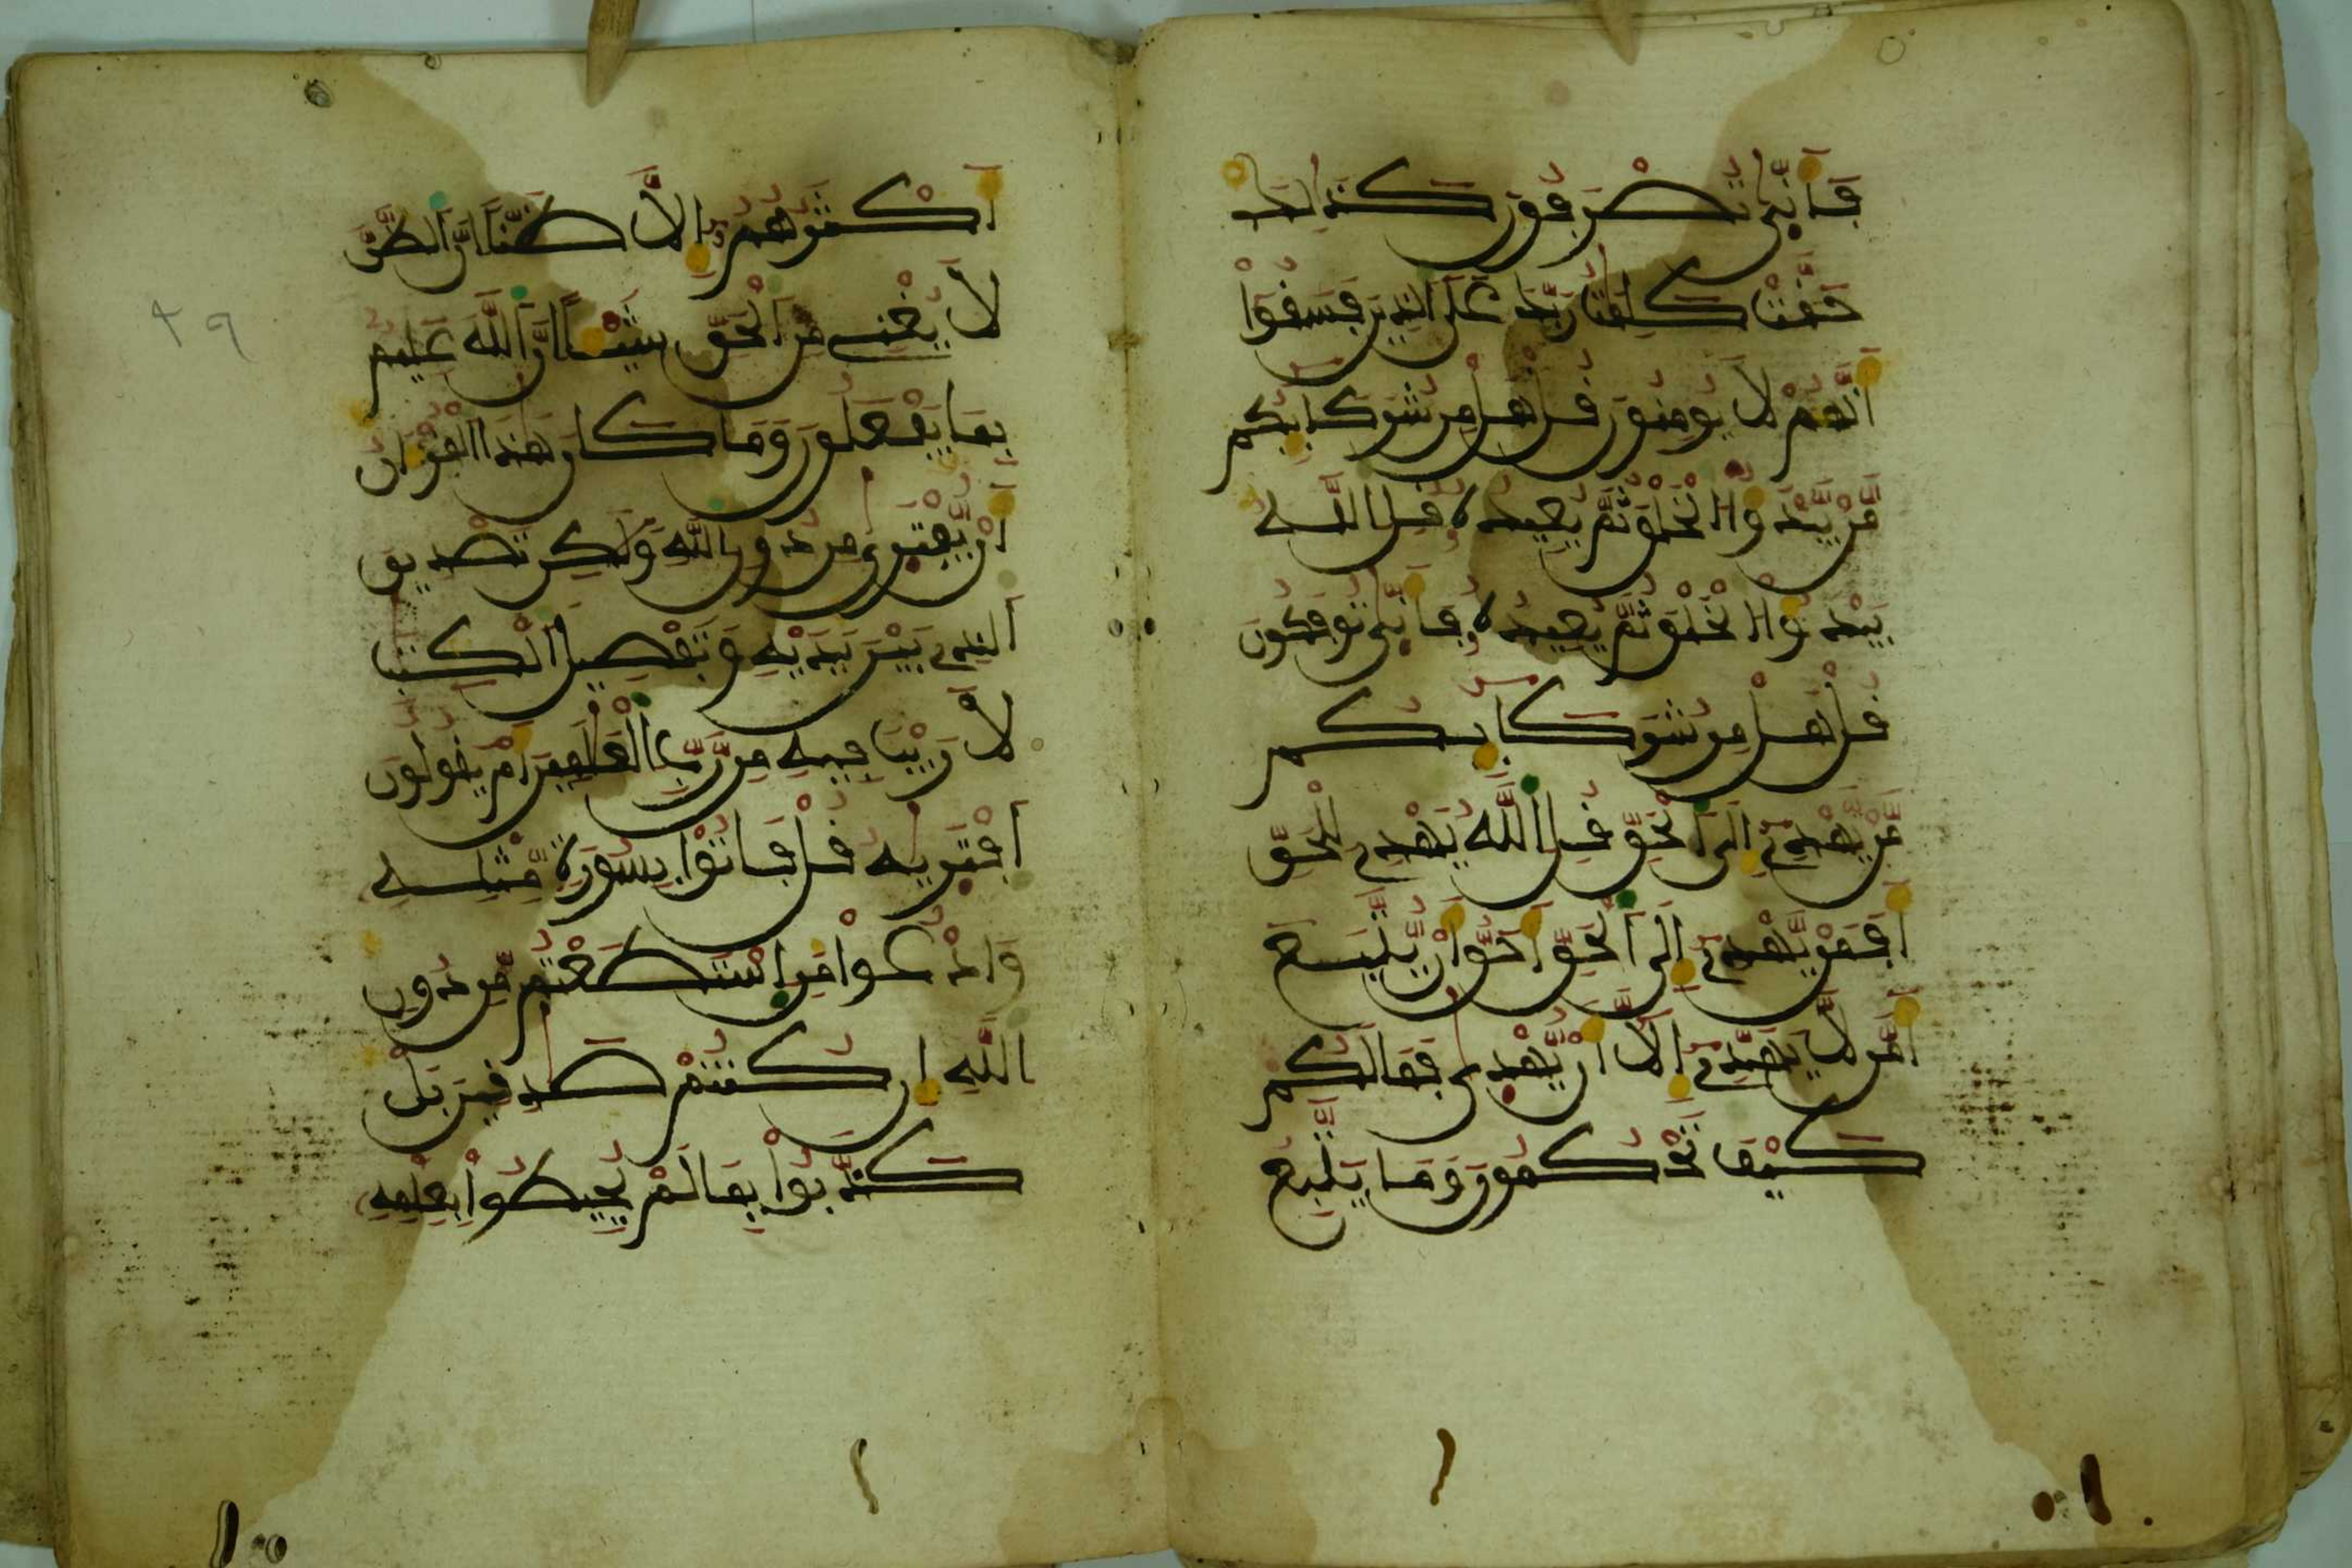 فَأَنّٜى تُصْرَفُونَ كَذَٰلِكَ
حَقَّتْ كَلِمَٰتُ رَبِّكَ عَلَى الذِينَ فَسَقُوٓاْ
أَنَّهُمْ لَا يُومِنُونَ قُلْ هَلْ مِن شُرَكَآئِكُم
مَّنْ يَّبْدَؤُاْ الْخَلْقَ ثُمَّ يُعِيدُهُۥ قُلِ اللَّهُ
يَبْدَؤُاْ الْخَلْقَ ثُمَّ يُعِيدُهُۥ فَأَنّٜى تُوفَكُونَ
قُلْ هَلْ مِن شُرَكَآئِكُم
مَّنْ يَّهْدِےٓ إِلَى الْحَقِّ قُلِ اللَّهُ يَهْدِے لِلْحَقِّ
أَفَمَنْ يَّهْدِےٓ إِلَى الْحَقِّ أَحَقُّ أَنْ يُّتَّبَعَ
أَمَّن لَّا يَهَدِّےٓ إِلَّآ أَنْ يُّهْدٜىٰ فَمَا لَكُمْ
كَيْفَ تَحْكُمُونَ وَمَا يَتَّبِعُ
أَكْثَرُهُمُۥٓ إِلَّا ظَنّاً اِنَّ اَلظَّنَّ
لَا يُغْنِے مِنَ اَلْحَقِّ شَيْـٔاً اِنَّ اَللَّهَ عَلِيمُۢ
بِمَا يَفْعَلُونَ وَمَا كَانَ هَٰذَا اَلْقُرْءَانُ
أَنْ يُّفْتَرٜىٰ مِن دُونِ اِللَّهِ وَلَٰكِن تَصْدِيقَ
اَلذِے بَيْنَ يَدَيْهِ وَتَفْصِيلَ اَلْكِتَٰبِ
لَا رَيْبَ فِيهِ مِن رَّبِّ اِلْعَٰلَمِينَ أَمْ يَقُولُونَ
اَفْتَرٜىٰهُ قُلْ فَاتُواْ بِسُورَةٍ مِّثْلِهِۦ
وَادْعُواْ مَنِ اِسْتَطَعْتُم مِّن دُونِ
اِللَّهِ إِن كُنتُمْ صَٰدِقِينَ بَلْ
كَذَّبُواْ بِمَا لَمْ يُحِيطُواْ بِعِلْمِهِۦ
٢٩